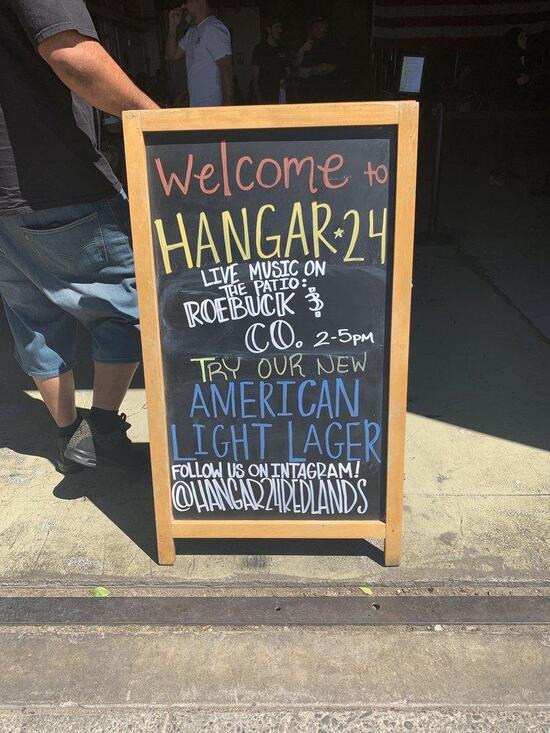 Welcome to
HANGAR★24
LIVE MUSIC ON
THE PATIO:
ROEBUCK &
CO. 2-5PM
TRY OUR NEW
AMERICAN
LIGHT LAGER
FOLLOW US ON INTAGRAM!
@HANGAR24REDLANDS